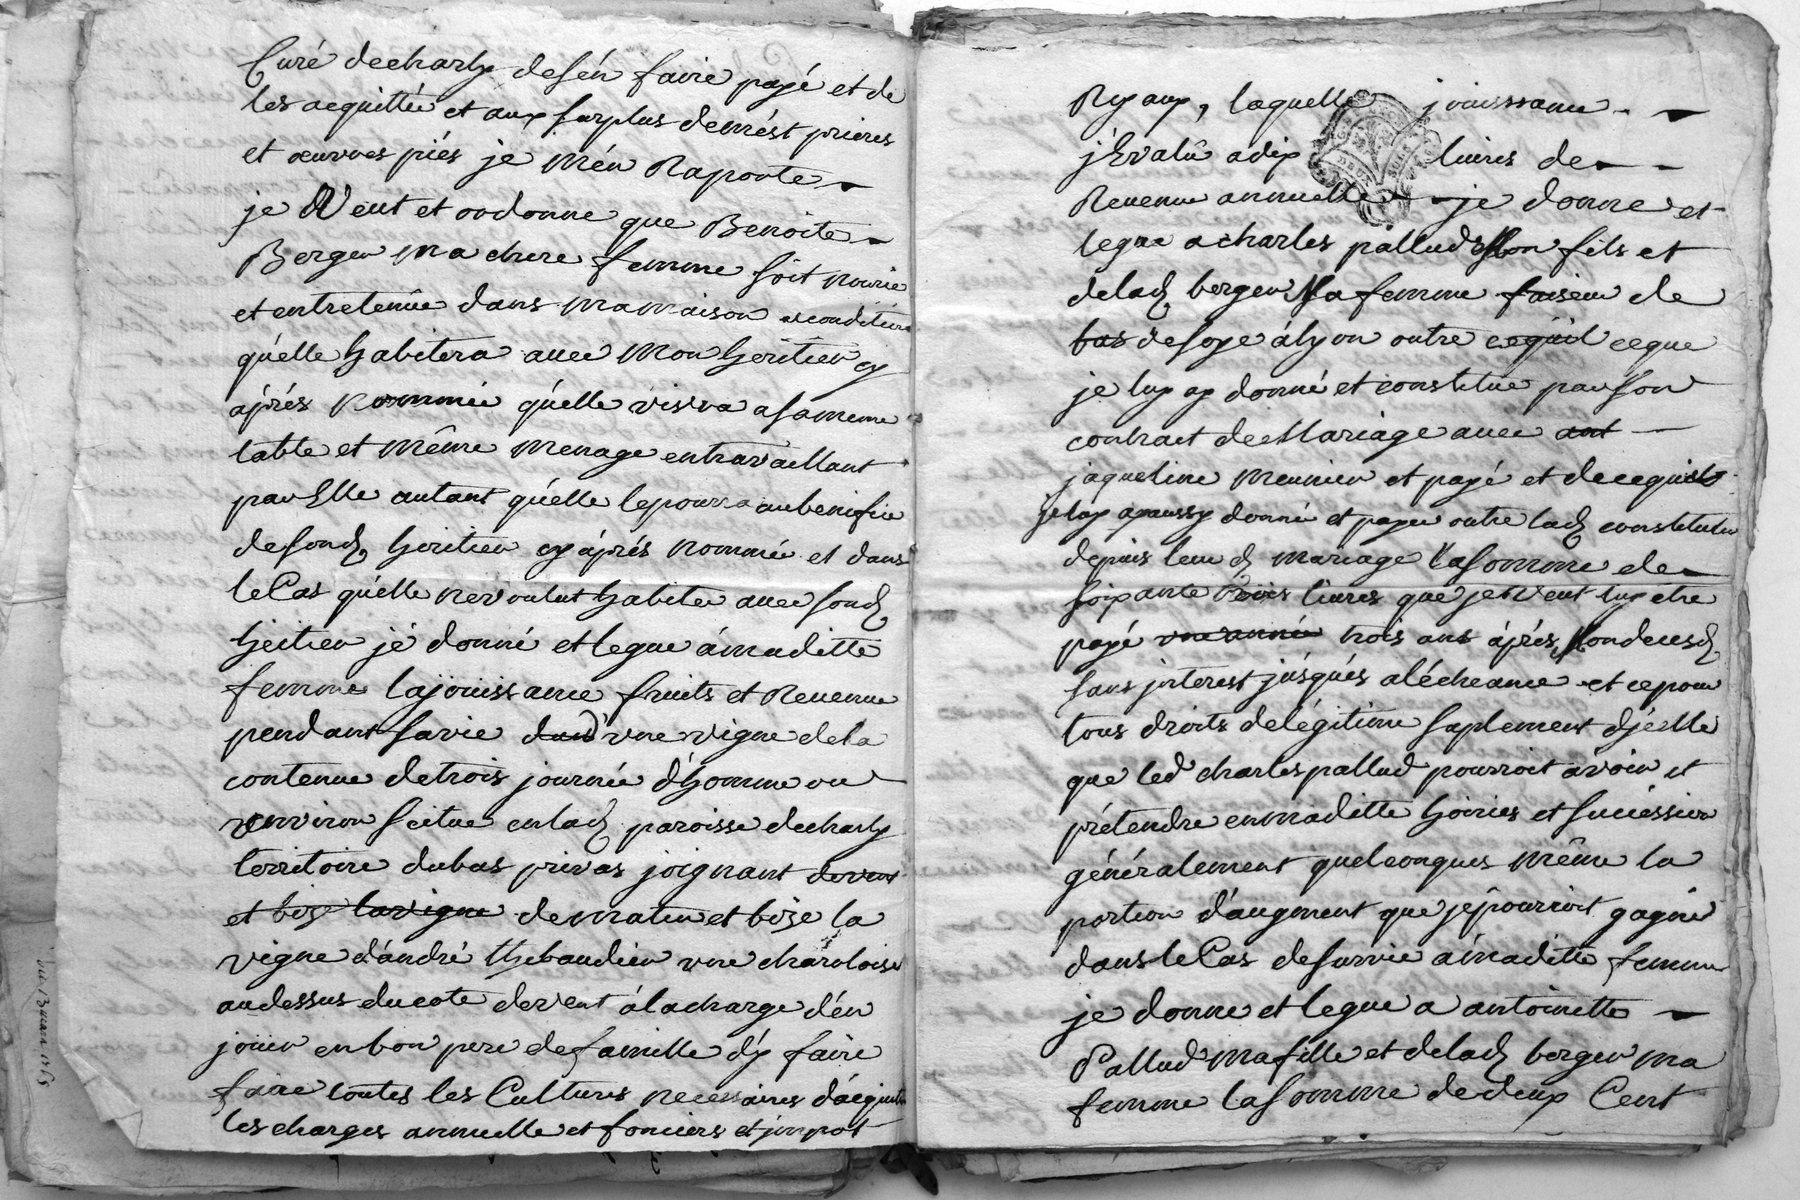 Curé decharly deſén faire payé et de
les acquittée et aux ſurplus demést prieres
et œuvres piés je mén Raporte
je Veut et ordonne que Benoite
Berger ma chere femme ſoit nourie
et entretenûe dans mamaison acondition
qúelle habitera avec mon heritier cy
aprés nommée qúelle vivra asameme
table et même menage entravaillant
par Elle autant qúelle lepourra aubenifice
deſond. heritier cy áprés nommé et dans
leCas qúelle nevoulut habiter avec ſond.
heitier jé donné et legue ámaditte
femme lajoüissance fruits et Revenue
pendant ſavie dund'une vigne dela
contenue detrois journée d'homme ou
environ ſcitue enlad. paroisse decharly
territoire dubas privas joignant devent
et bize lavigne dematin et bize la
vigne d'andré thebaudier une charloise
audessus ducote devent álacharge d'én
joüir enbon pere defamille d'y faire
faire toutes les Cultures necessaires d'acquitte
les charges annuelle et fonciers et jmpot
Ryaux, laquelle joüissance
jEvalû adix livres de
Revenue annuelle je donne et
legue acharles pallud Mon fils et
delad. berger Ma femme faiseur de
bas desoye ályon outre cequil ceque
je luy ay donné et constitüe parſon
contract deMariage avec ant
jaqueline meunier et payé et decequil
jeluy ayaussy donné et payer outre lad. constitution
depuis leur d. mariage Lasomme de
ſoixante trois livres que jeVeut luy etre
payé une année trois ans áprés Mondecesd.
ſans jnterest júsqués alécheance et cepour
tous droits delégitime ſuplement d'jcelle
que led charlespallud pourroit avoir et
prétendre enmaditte hoiries et ſucéssion
généralement quelconques même la
portion d'augment que jépourroit gagné
dansleCas deſurvie ámaditte femme
je donne et legue a antoinette
Pallud mafille et delad. berger ma
femme laſomme dedeux Cent